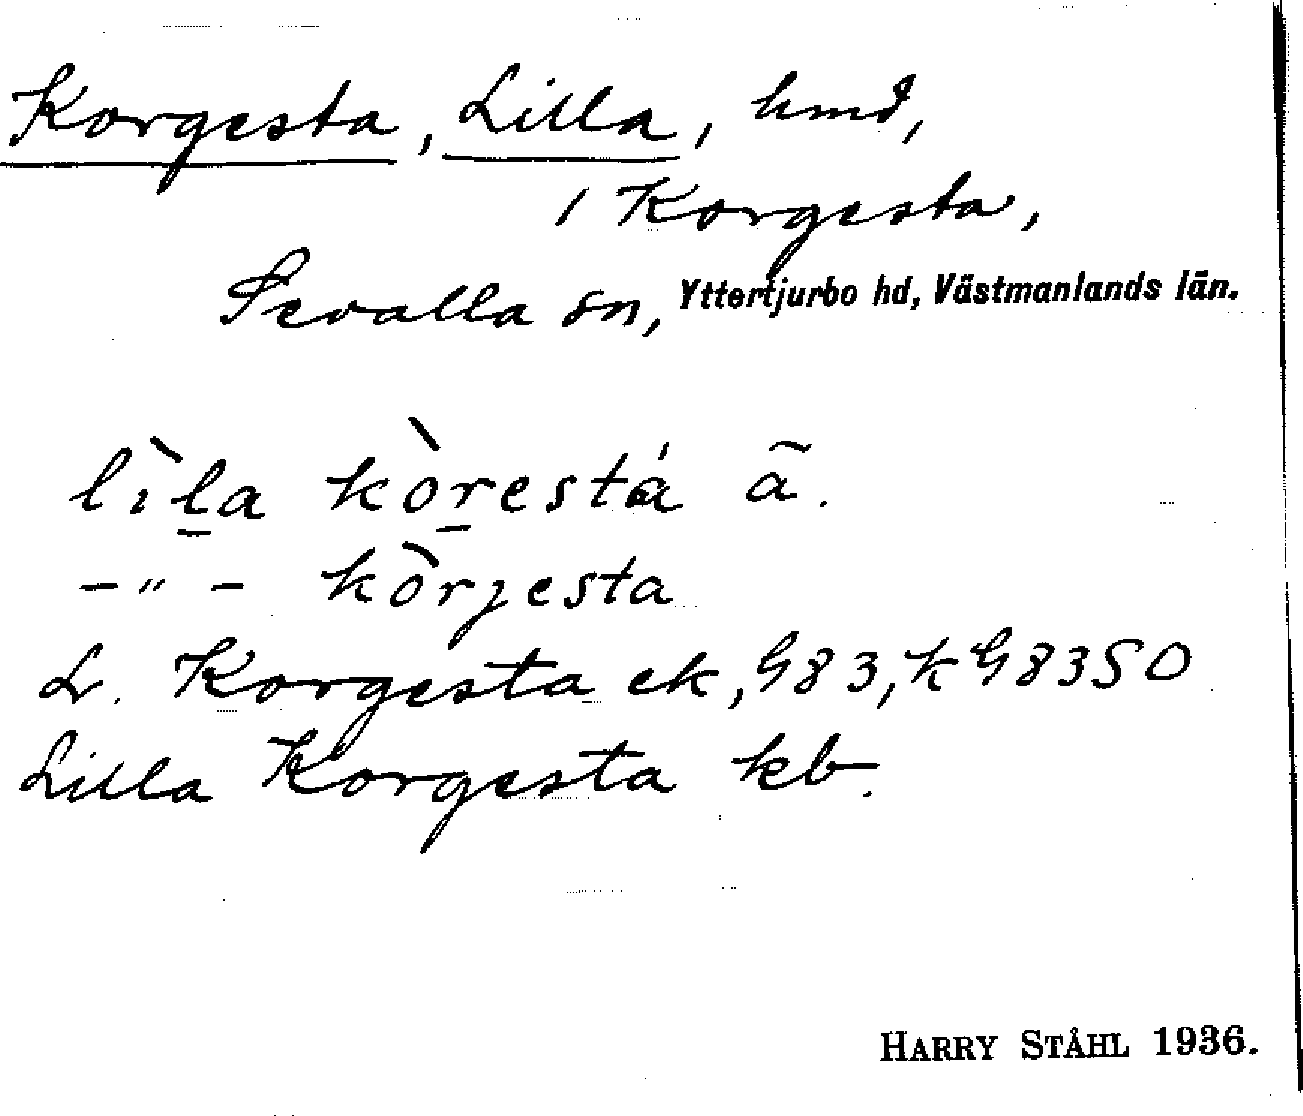 Korgesta, Lilla, hmd,
/ Korgesta,
Sevalla sn, Yttertjurbo hd, Västmanlands län.
lìl̠a kòr̠está ã.
–〃– kòrjesta
L. Korgesta ek, G83, kG83SO
Lilla Korgesta kb.
HARRY STÅHL 1936.